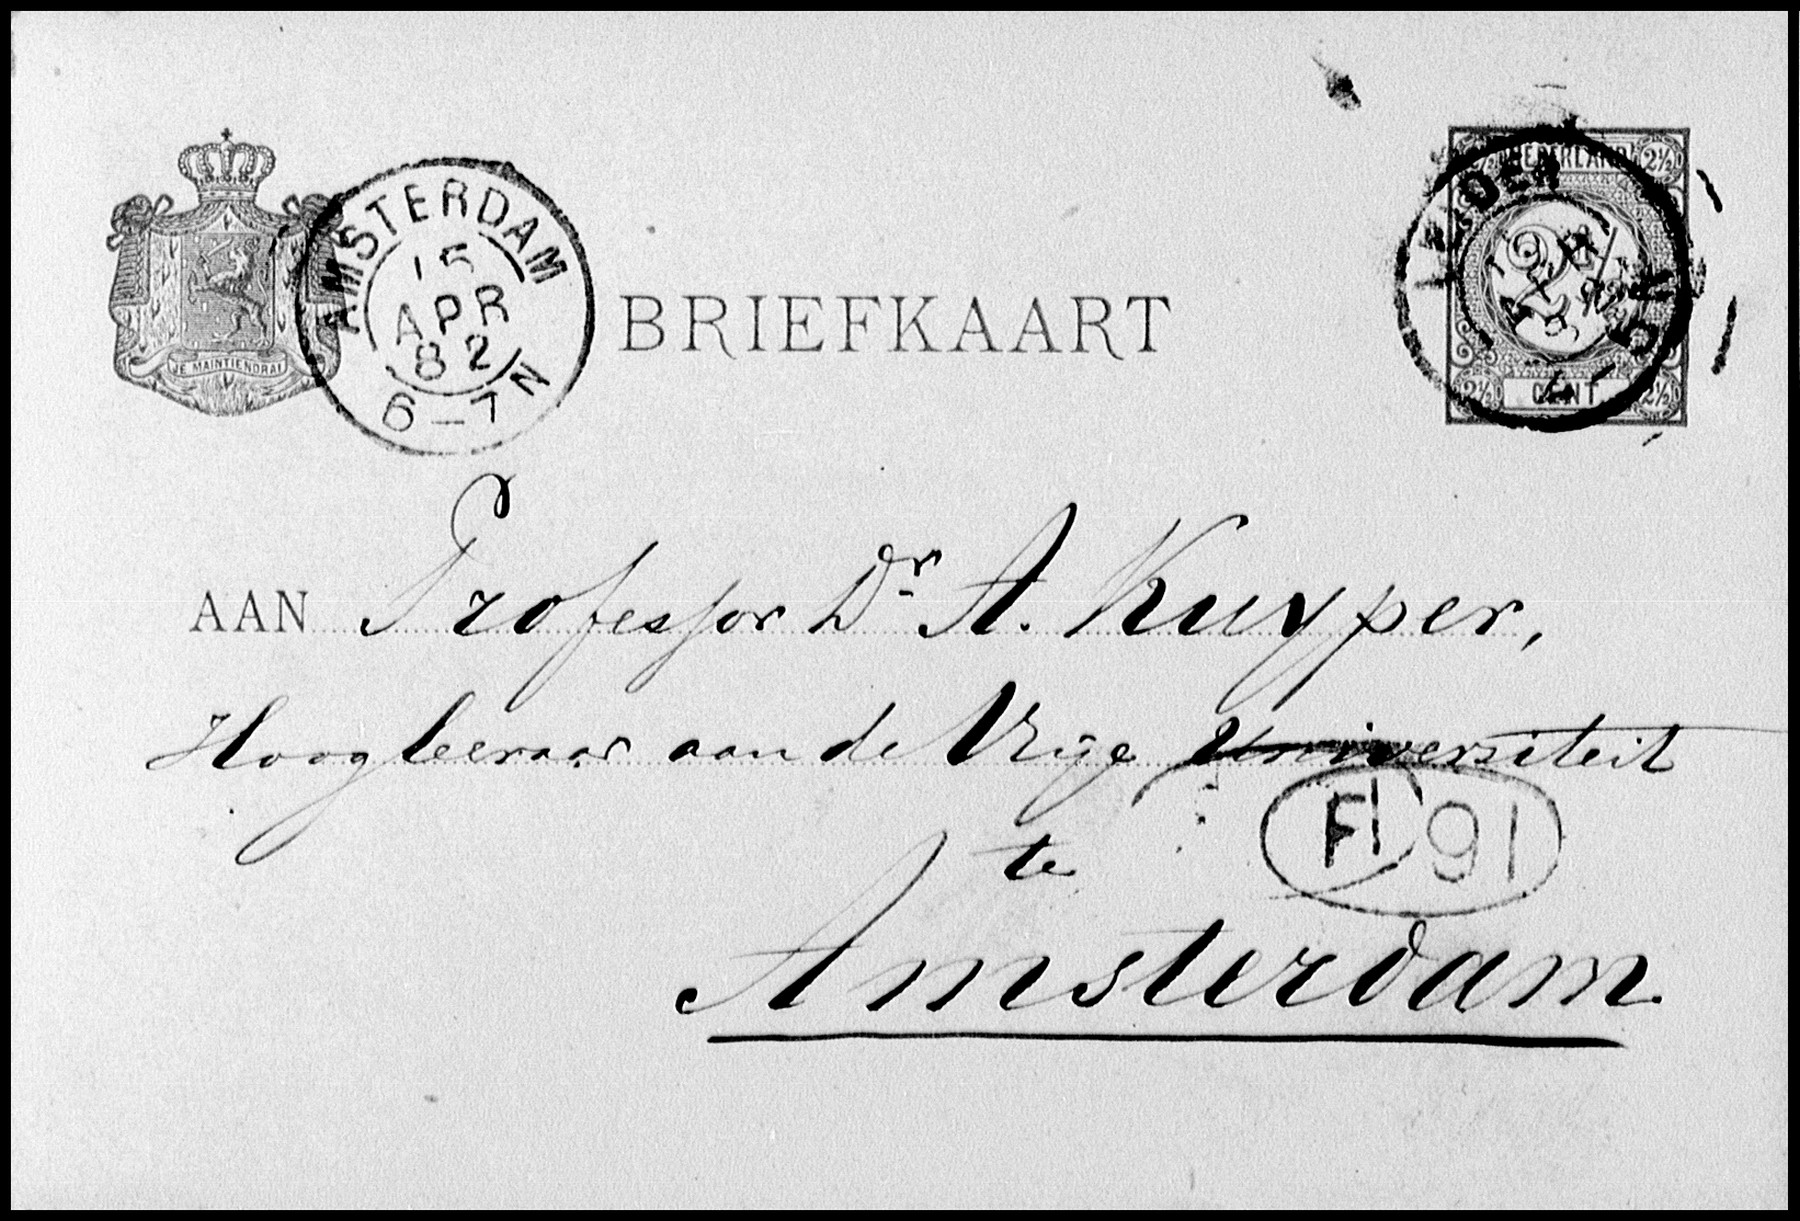 NEDERLAND
2½
2½
CENT
2½
2½
JE MAINTIENDRAI
AMSTERDAM
15
APR
82
6-7N
BRIEFKAART
AAN Professor Dr A. Kuyper,
Hoogleeraar aan de Vrije Universiteit
te
Amsterdam.
F 91